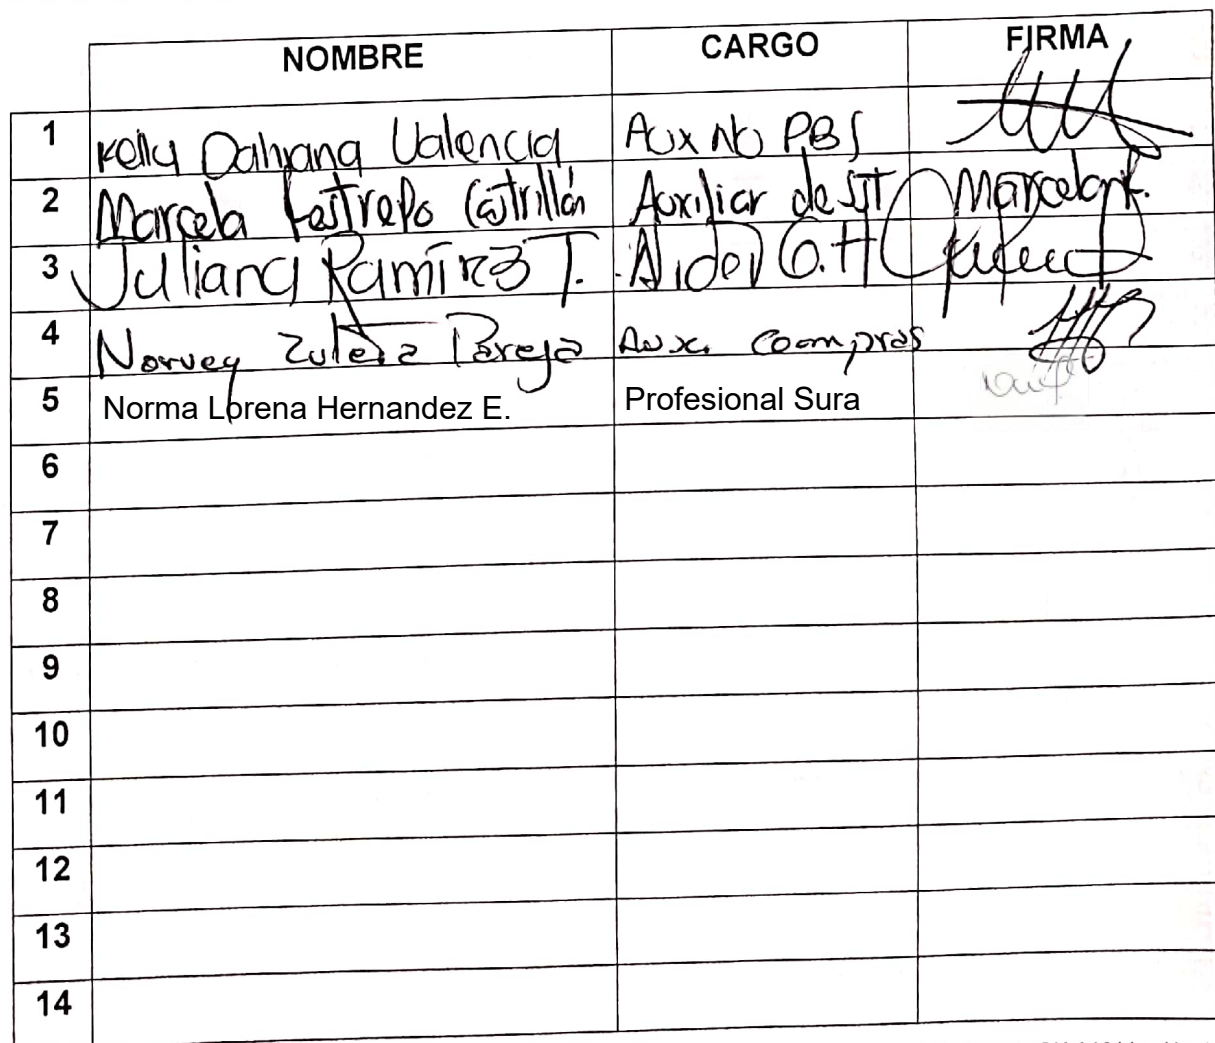 NOMBRE CARGO FIRMA
1 Kelly Dahiana Valencia Aux No PBS
2 Marcela Restrepo Castrillón Auxiliar de SST
3 Juliana Ramírez T. G.H
4 Norvey Zuleta Pareja Aux. Compras
5 Norma Lorena Hernandez E. Profesional Sura
6
7
8
9
10
11
12
13
14